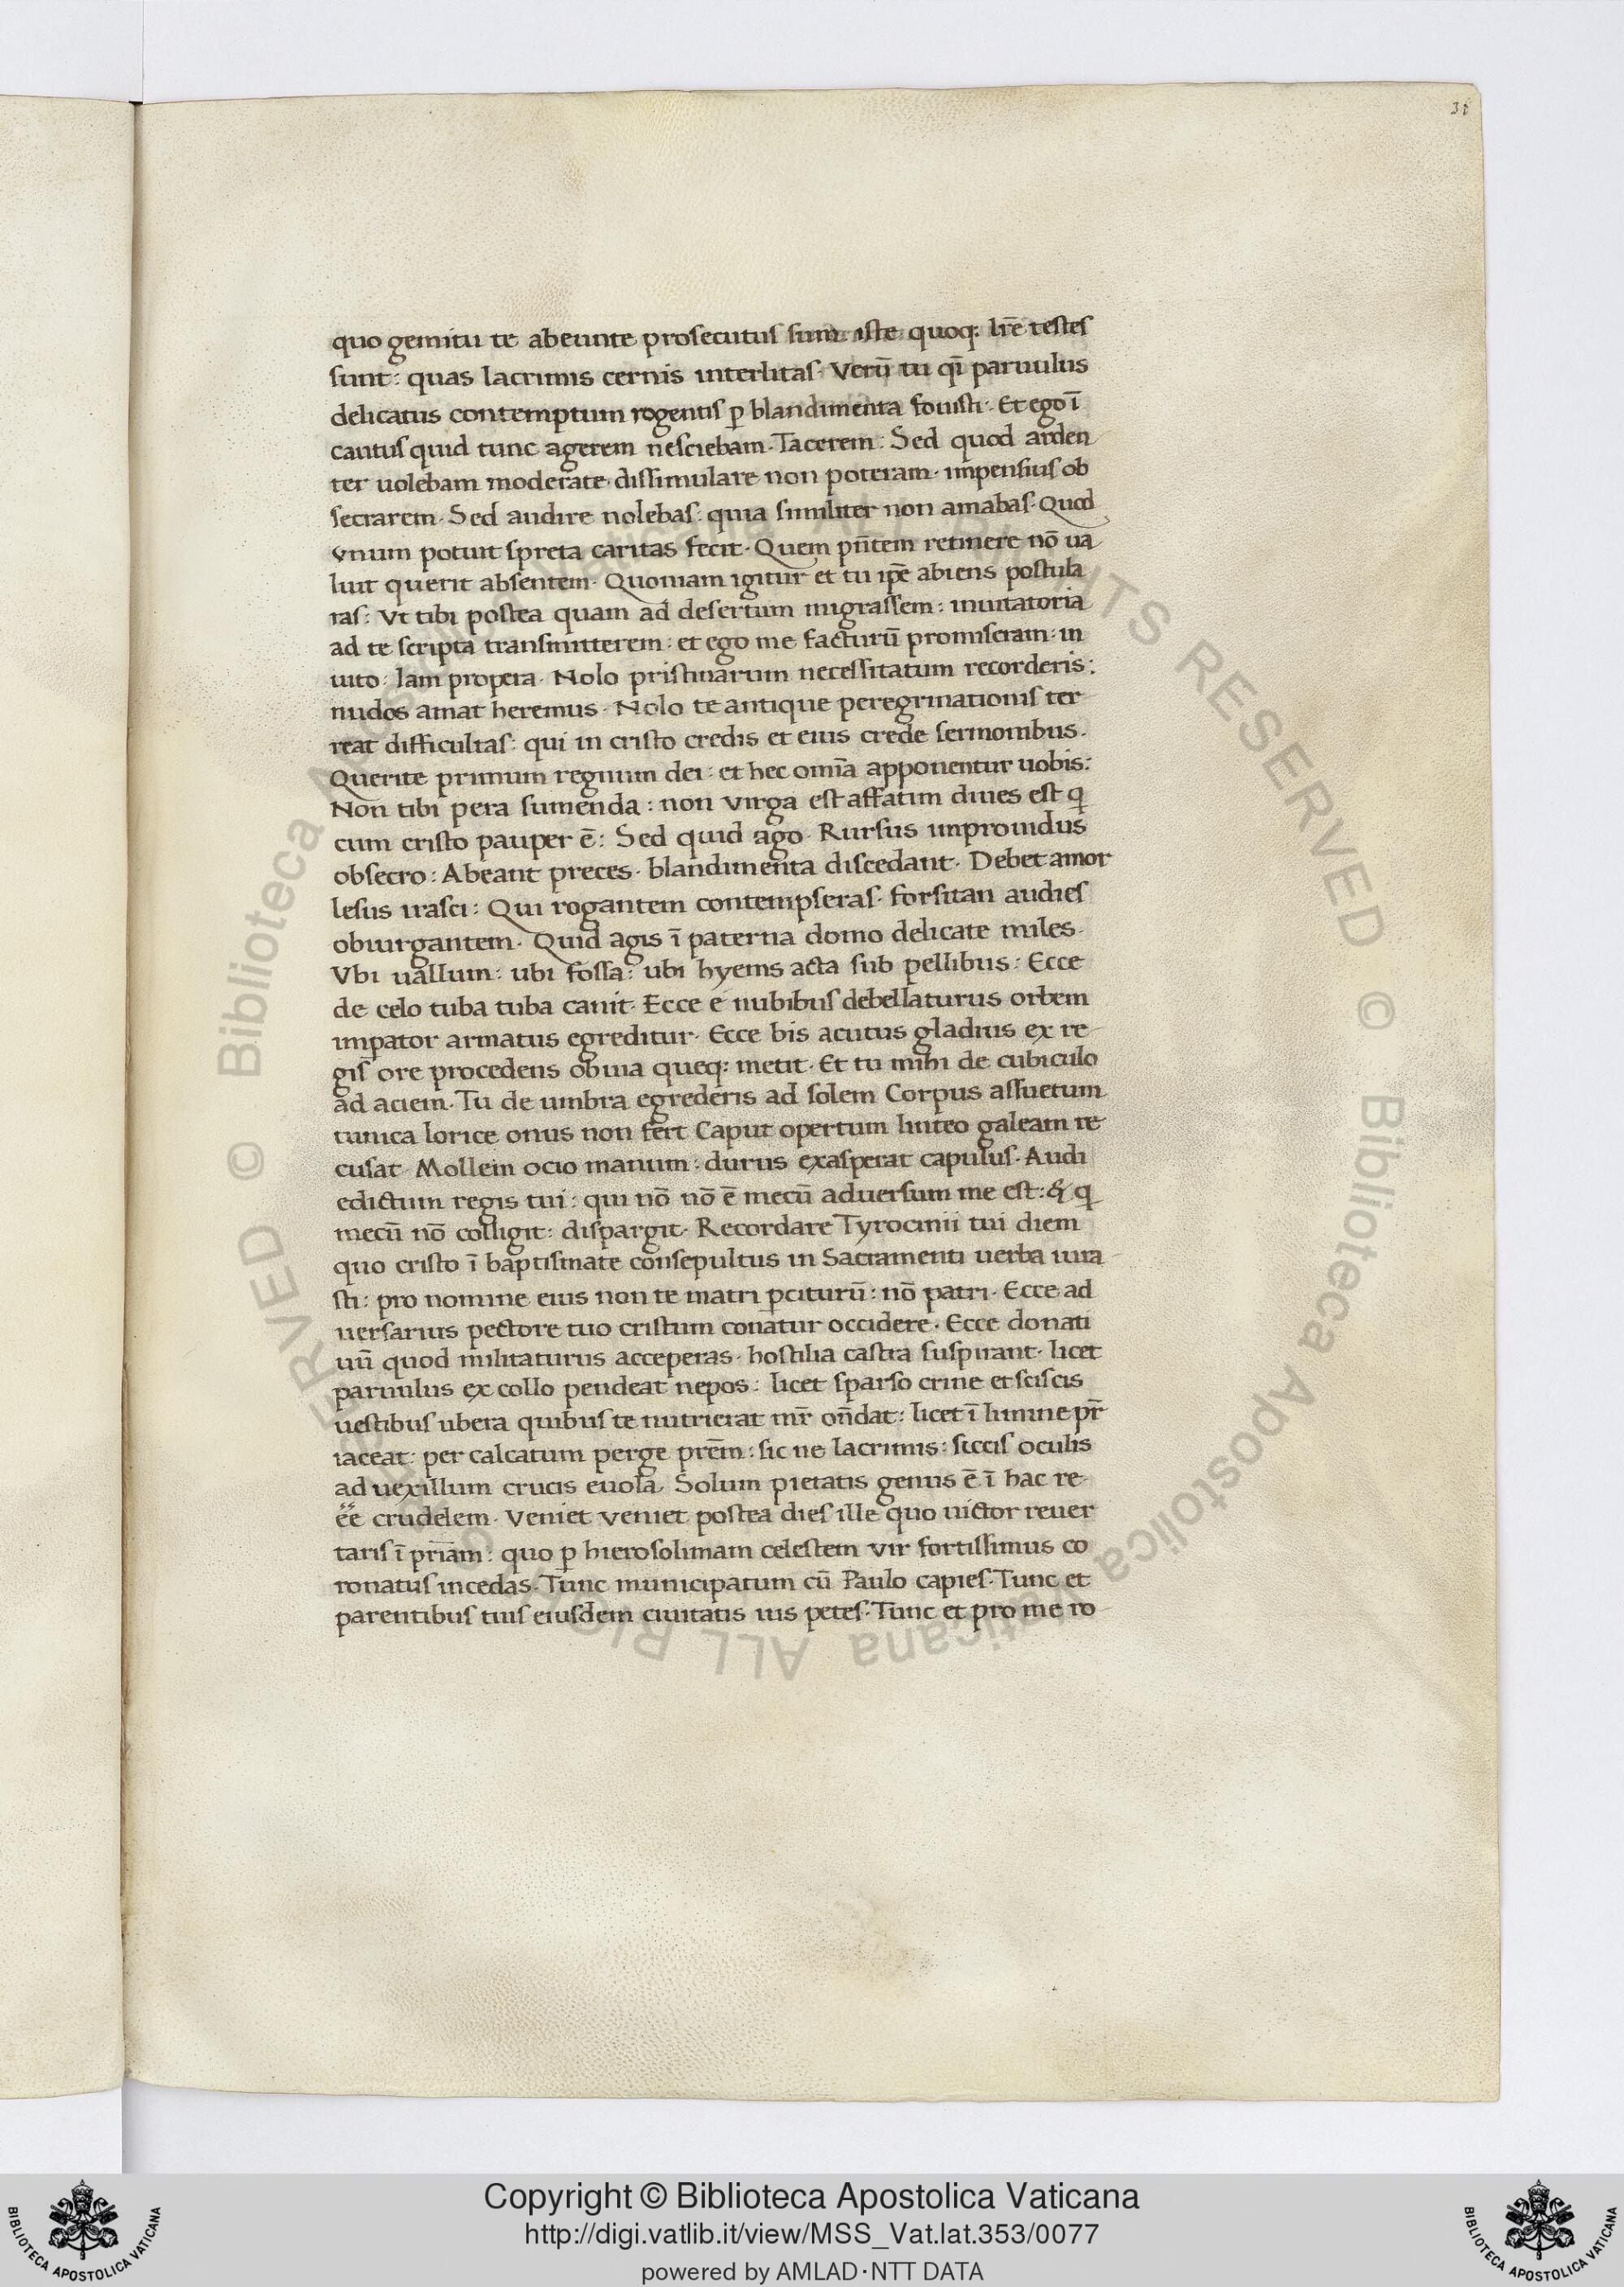 31
quo gemitu te abeunte prosecutus sum iste quoq: lr̄e testes
sunt: quas lacrimis cernis interlitas· Verū tu qī paruulus
delicatus contemptum rogentis ꝑ blandimenta fouisti· Et ego ī
cautus quid tunc agerem nesciebam· Tacerem: Sed quod arden
ter uolebam moderate dissimulare non poteram· impensius ob
secrarem· Sed audire nolebas: quia similiter non amabas· Quod
vnum potuit spreta caritas fecit· Quem pn̄tem retinere nō ua
luit querit absentem· Quoniam igitur et tu ip̄e abiens postula
ras: Vt tibi postea quam ad desertum migrassem: inuitatoria
ad te scripta transmitterem: et ego me facturū promiseram: in
uito: Iam propera· Nolo pristinarum necessitatum recorderis:
nudos amat heremus· Nolo te antique peregrinationis ter
reat difficultas: qui in cristo credis et eius crede sermonibus·
Querite primum regnum dei: et hec omīa apponentur uobis:
Non tibi pera sumenda: non virga est affatim diues est q̄
cum cristo pauper ē: Sed quid ago· Rursus improuidus
obsecro: Abeant preces· blandimenta discedant· Debet amor
lesus irasci: Qui rogantem contempseras· forsitan audies
obiurgantem· Quid agis ī paterna domo delicate miles·
Vbi uallum: ubi fossa: ubi hyems acta sub pellibus: Ecce
de celo tuba tuba canit· Ecce e nubibus debellaturus orbem
impator armatus egreditur· Ecce bis acutus gladius ex re
gis ore procedens obuia queq: metit· Et tu mihi de cubiculo
ad aciem· Tu de umbra egrederis ad solem Corpus assuetum
tunica lorice onus non fert Caput opertum linteo galeam re
cusat· Mollem ocio manum: durus exasperat capulus· Audi
edictum regis tui: qui nō nō ē mecū aduersum me est: & q
mecū nō colligit: dispargit· Recordare Tyrocinii tui diem
quo cristo ī baptismate consepultus in Sacramenti uerba iura
sti: pro nomine eius non te matri ꝑciturū: nō patri· Ecce ad
uersarius pectore tuo cristum conatur occidere· Ecce donati
uū quod militaturus acceperas· hostilia castra suspirant· licet
paruulus ex collo pendeat nepos: licet sparso crine et sciscis
uestibus ubera quibus te nutrierat mr̄ on̄dat: licet ī limine pr̄
iaceat: per calcatum perge prēm: sic ne lacrimis: siccis oculis
ad uexillum crucis euola· Solum pietatis genus ē ī hac re
ēē crudelem· Veniet veniet postea dies ille quo uictor reuer
taris ī priam̄: quo ꝑ hierosolimam celestem vir fortissimus co
ronatus incedas· Tunc municipatum cū Paulo capies· Tunc et
parentibus tuis eiusdem ciuitatis ius petes· Tunc et pro me ro
© Biblioteca Apostolica Vaticana ALL RIGHTS RESERVED
© Biblioteca Apostolica Vaticana ALL RIGHTS RESERVED
Copyright © Biblioteca Apostolica Vaticana
http://digi.vatlib.it/view/MSS_Vat.lat.353/0077
powered by AMLAD·NTT DATA
BIBLIOTECA APOSTOLICA VATICANA
BIBLIOTECA APOSTOLICA VATICANA